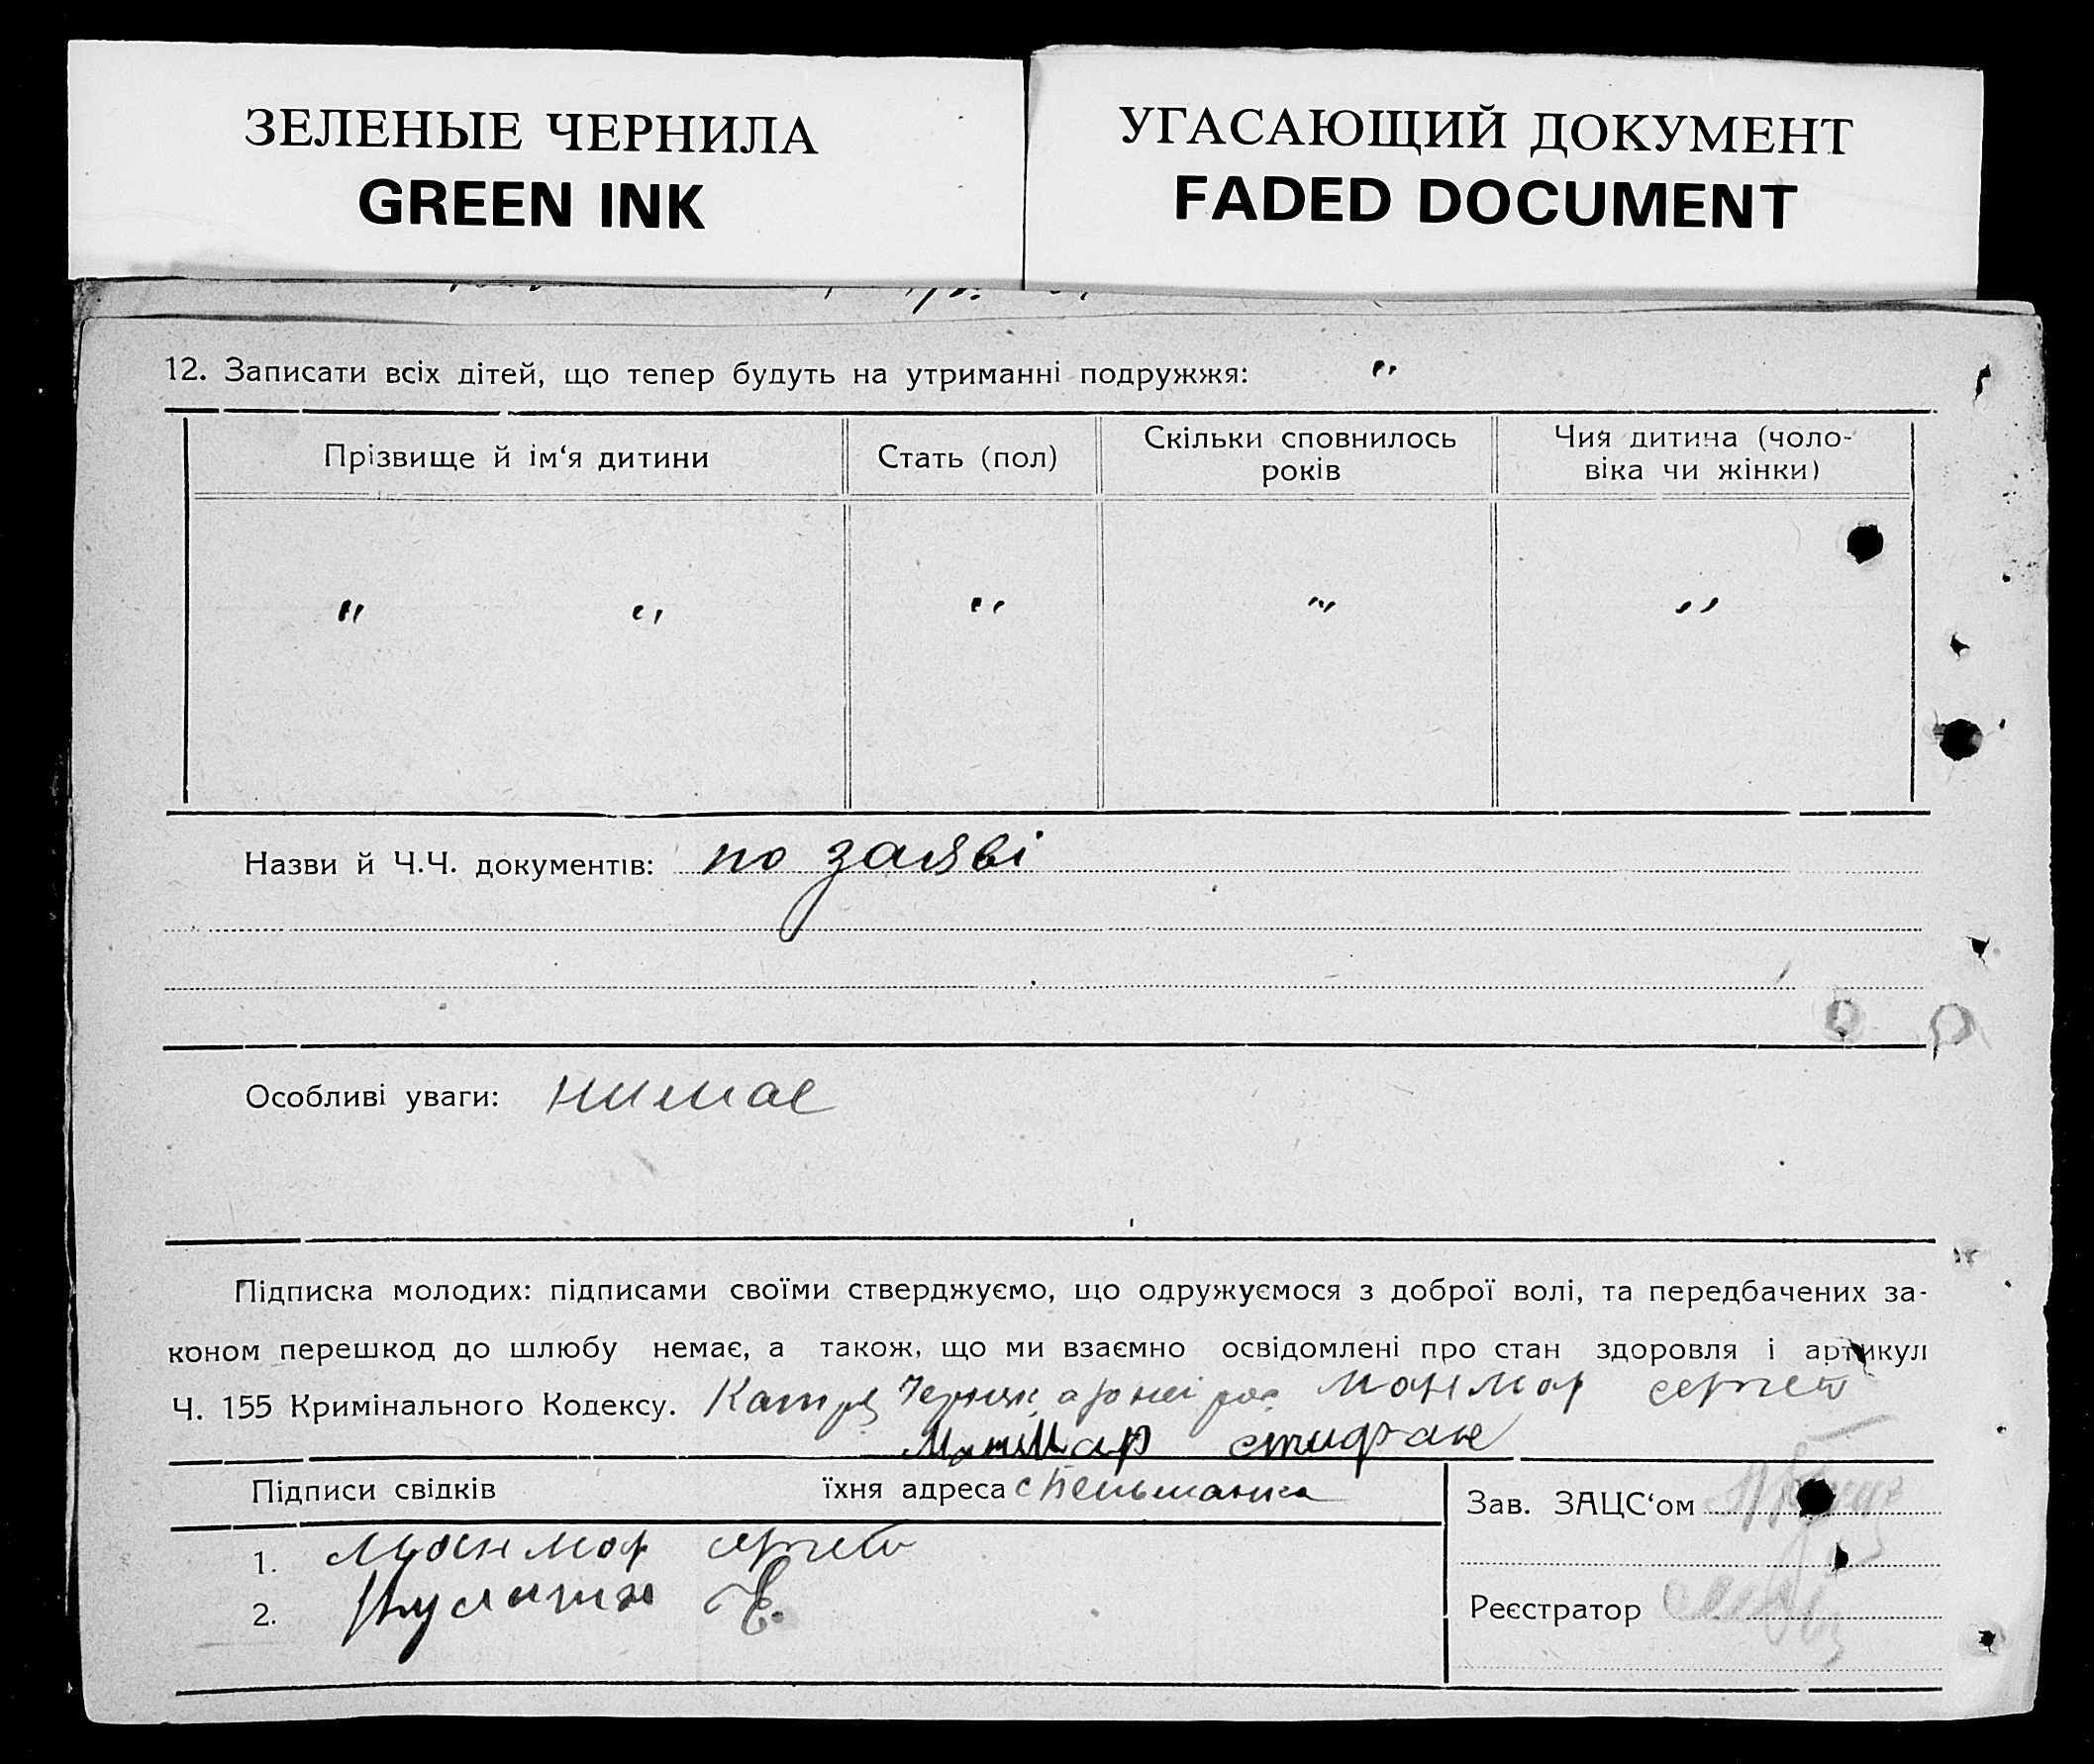 ЗЕЛЕНЫЕ ЧЕРНИЛА
GREEN INK
УГАСАЮЩИЙ ДОКУМЕНТ
FADED DOCUMENT
12. Записати всіх дітей, що тепер будуть на утриманні подружжя: „
Прізвище й ім‘я дитини
Стать (пол)
Скільки сповнилось
років
Чия дитина (чоло-
віка чи жінки)
„ „ „ „ „
Назви й Ч.Ч. документів: по заяві
Особливі уваги: нимае
Підписка молодих: підписами своїми стверджуємо, що одружуємося з доброї волі, та передбачених за-
коном перешкод до шлюбу немає, а також, що ми взаємно освідомлені про стан здоровля і артикул
Ч. 155 Кримінального Кодексу. Манмар
стифан
Підписи свідків
їхня адреса с
1. Манмар
2. Е.
Зав. ЗАЦС‘ом
Реєстратор